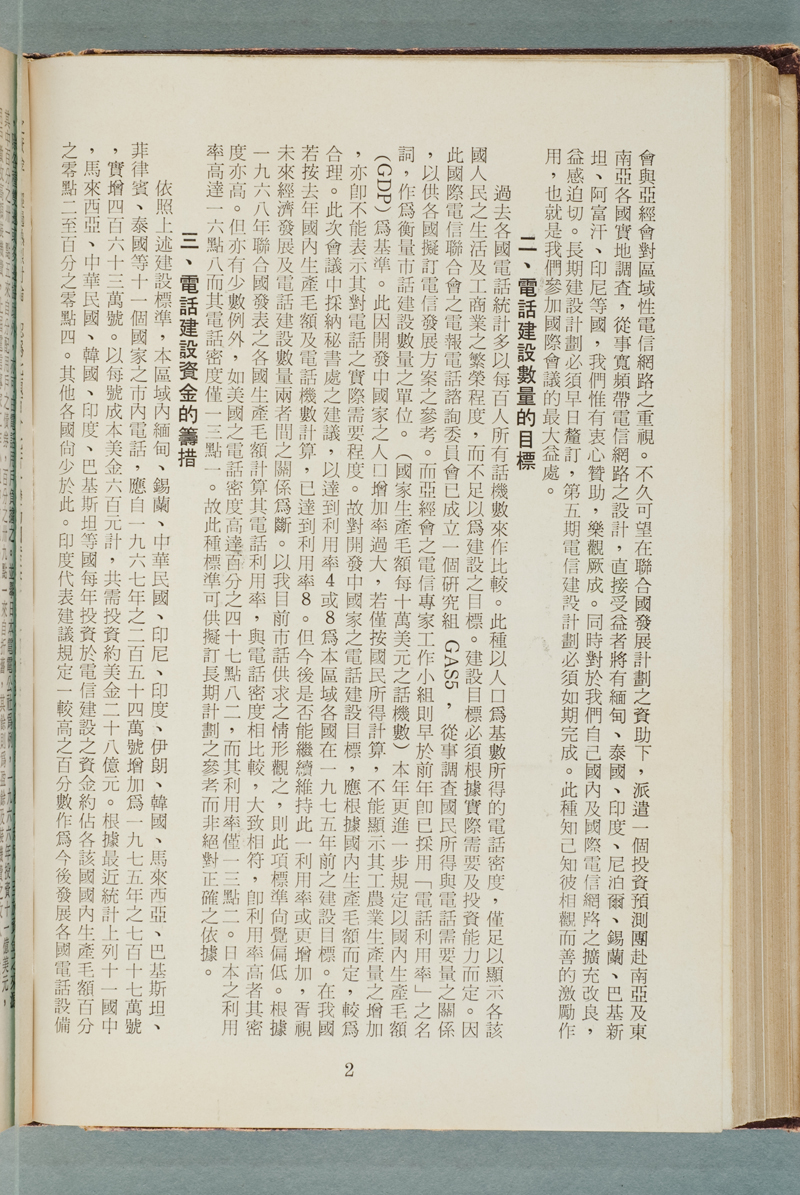 會與亞經會對區域性電信網路之重視。不久可望在聯合國發展計劃之資助下，派遣一個投資預測團赴南亞及東
南亞各國實地調查，從事寬頻帶電信網路之設計，直接受益者將有緬甸、泰國、印度、尼泊爾、錫蘭、巴基斯
坦、阿富汗、印尼等國，我們惟有衷心贊助，樂觀厥成。同時對於我們自己國內及國際電信網路之擴充改良，
益感迫切。長期建設計劃必須早日釐訂，第五期電信建設計劃必須如期完成。此種知己知彼相觀而善的激勵作
用，也就是我們參加國際會議的最大益處。
二、電話建設數量的目標
過去各國電話統計多以每百人所有話機數來作比較。此種以人口為基數所得的電話密度，僅足以顯示各該
國人民之生活及工商業之繁榮程度，而不足以爲建設之目標。建設目標必須根據實際需要及投資能力而定。因
此國際電信聯合會之電報電話諮詢委員會已成立一個研究組 GAS5 ，從事調查國民所得與電話需要量之關係
，以供各國擬訂電信發展方案之參考。而亞經會之電信專家工作小組則早於前年卽已採用「電話利用率」之名
詞，作爲衡量市話建設數量之單位。（國家生產毛額每十萬美元之話機數）本年更進一步規定以國內生產毛額
(GDP)爲基準。此因開發中國家之人口增加率過大，若僅按國民所得計算，不能顯示其工農業生產量之增加
，亦卽不能表示其對電話之實際需要程度。故對開發中國家之電話建設目標，應根據國內生產毛額而定，較爲
合理。此次會議中採納秘書處之建議，以達到利用率4或8爲本區域各國在一九七五年前之建設目標。在我國
若按去年國內生產毛額及電話機數計算，已達到利用率8。但今後是否能繼續維持此一利用率或更增加，胥視
未來經濟發展及電話建設數量兩者間之關係爲斷。以我目前市話供求之情形觀之，則此項標準尙覺偏低。根據
一九六八年聯合國發表之各國生產毛額計算其電話利用率，與電話密度相比較，大致相符，卽利用率高者其密
度亦高。但亦有少數例外，如美國之電話密度高達百分之四十七點八二，而其利用率僅一三點二。日本之利用
率高達一六點八而其電話密度僅一三點一。故此種標準可供擬訂長期計劃之參考而非絕對正確之依據。
三、電話建設資金的籌措
依照上述建設標準，本區域內緬甸、錫蘭、中華民國、印尼、印度、伊朗、韓國、馬來西亞、巴基斯坦、
菲律賓、泰國等十一個國家之市內電話，應自一九六七年之二百五十四萬號增加爲一九七五年之七百十七萬號
，實增四百六十三萬號。以每號成本美金六百元計，共需投資約美金二十八億元。根據最近統計上列十一國中
，馬來西亞、中華民國、韓國、印度、巴基斯坦等國每年投資於電信建設之資金約佔各該國國內生產毛額百分
之零點二至百分之零點四。其他各國尙少於此。印度代表建議規定一較高之百分數作爲今後發展各國電話設備
2